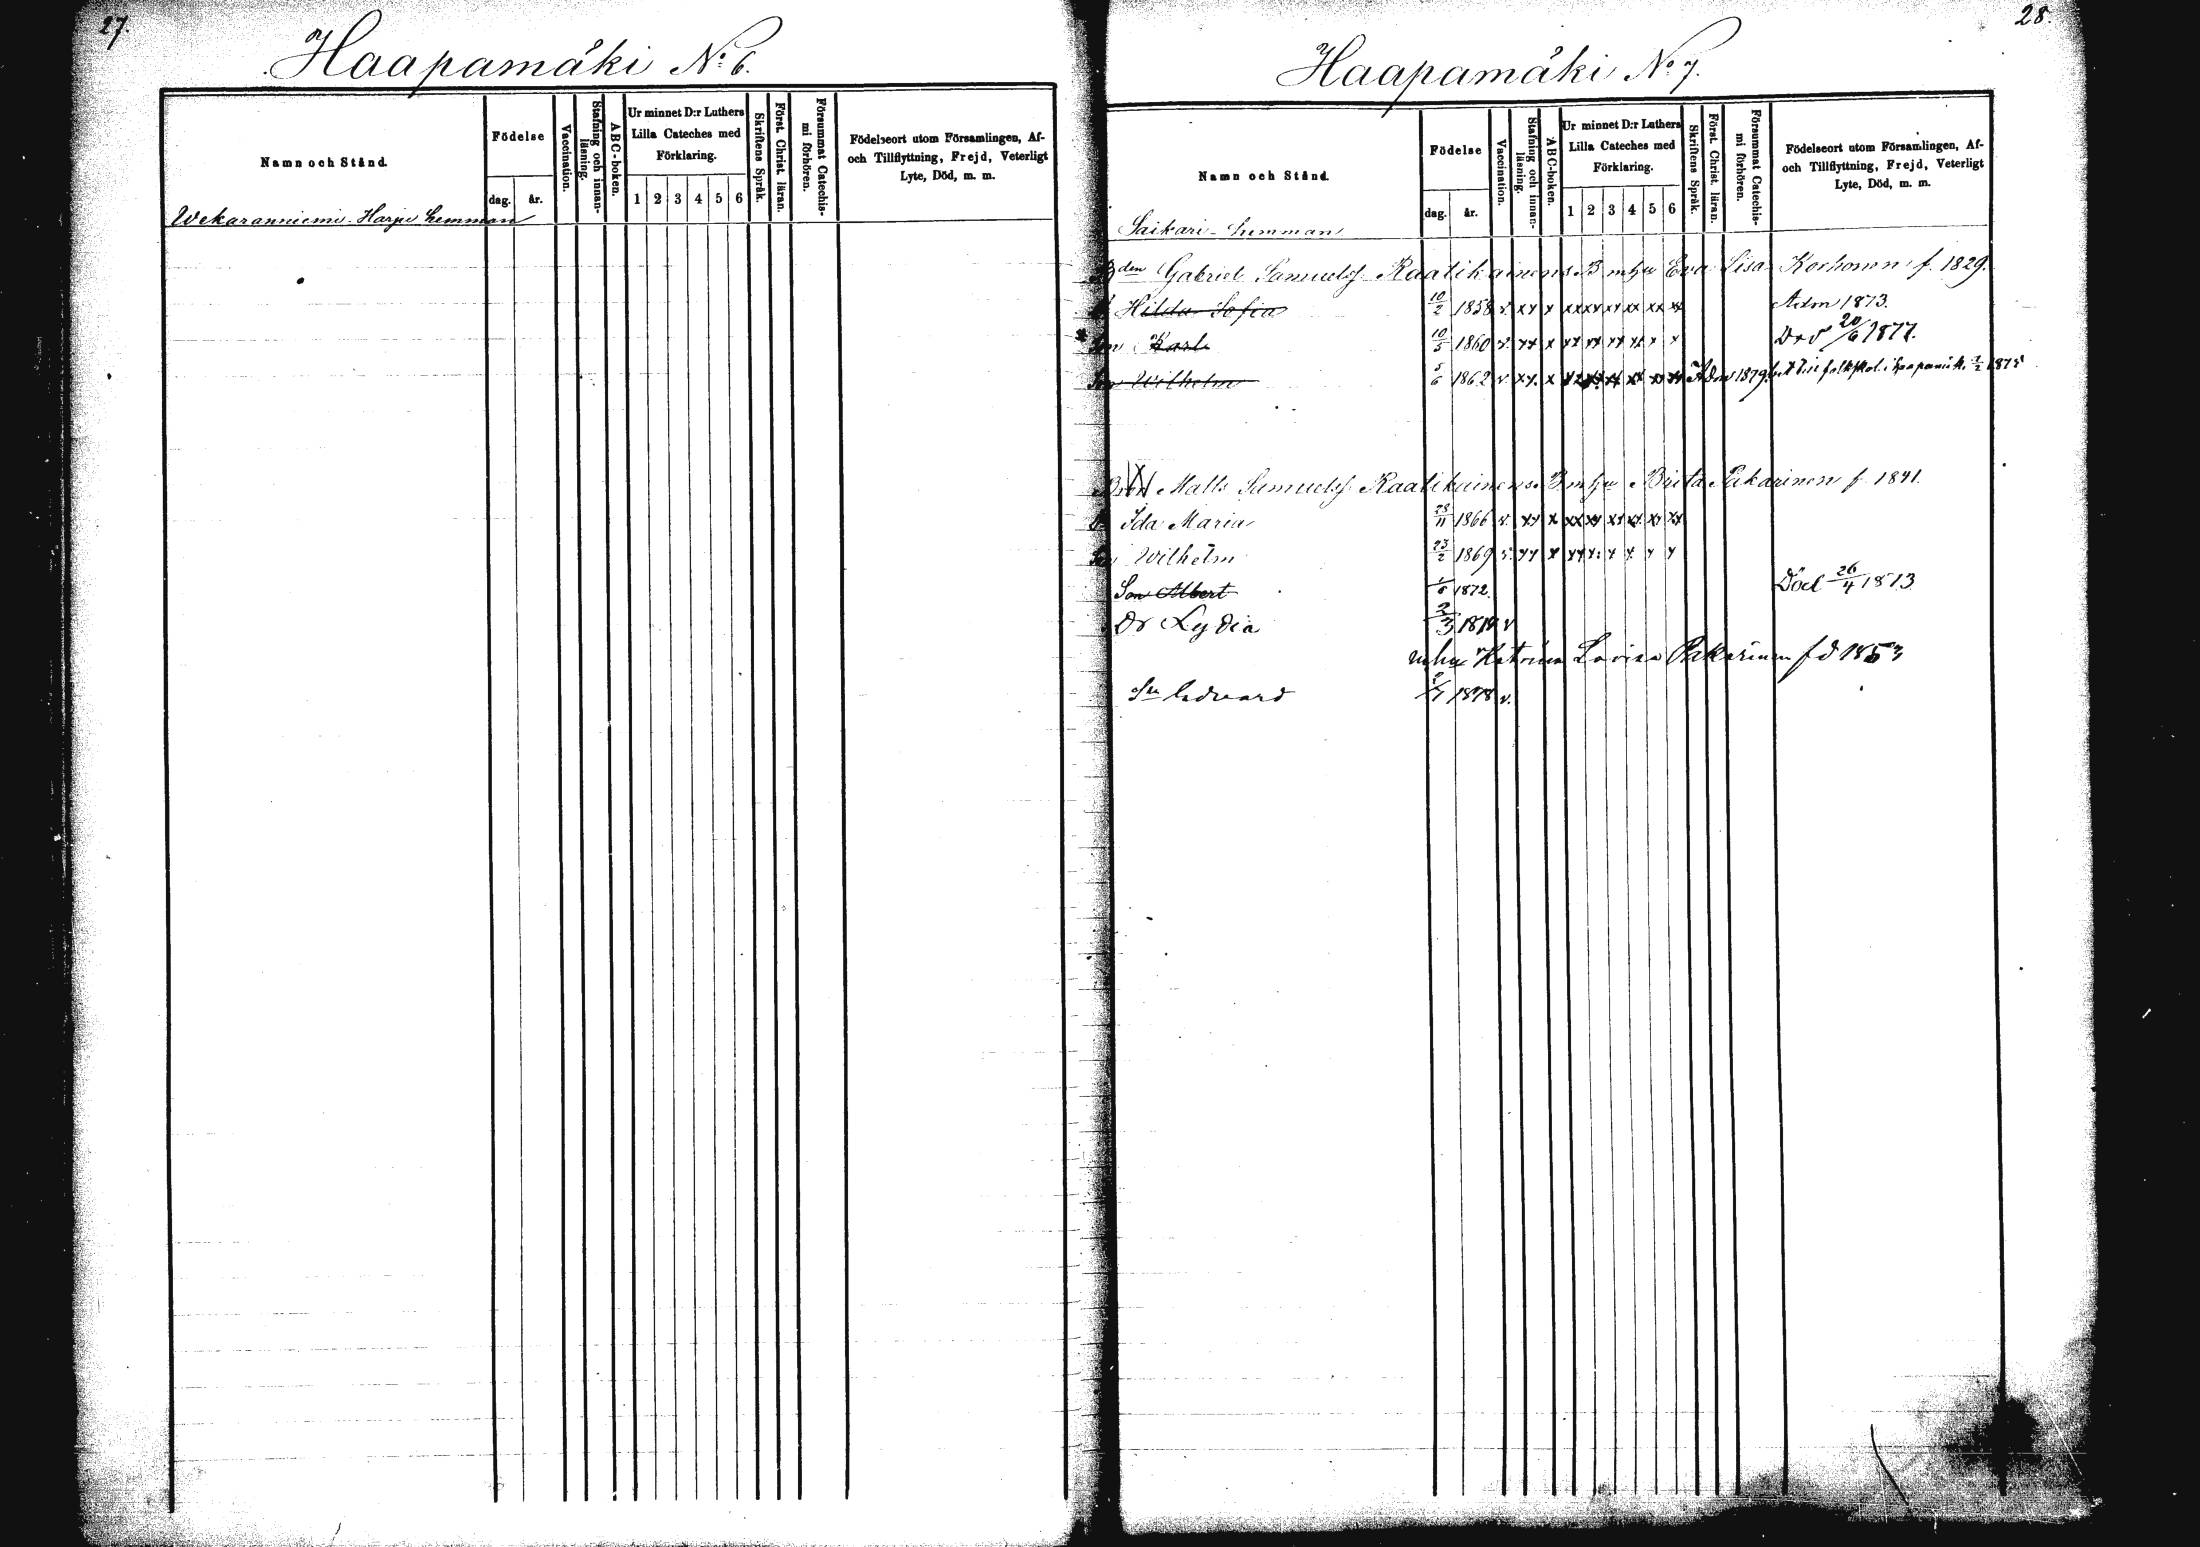 27.
Haapamäki No 6.
Namn och Stånd.
Födelse
dag.
år.
Vaccination.
Stafning och innanläsning.
ABC-boken.
Ur minnet D:r Luthers
Lilla Cateches med
Förklaring.
1 2 3 4 5 6
Skriftens Språk.
Först. Christ. läran.
Försummat Catechismi förhören.
Födelseort utom Församlingen, Af-
och Tillflyttning, Frejd, Veterligt
Lyte, Död, m. m.
Wekaranniemi Harju hemman
28.
Haapamäki No 7.
Namn och Stånd.
Födelse
dag.
år.
Vaccination.
Stafning och innanläsning.
ABC-boken.
Ur minnet D:r Luthers
Lilla Cateches med
Förklaring.
1 2 3 4 5 6
Skriftens Språk.
Först. Christ. läran.
Försummat Catechismi förhören.
Födelseort utom Församlingen, Af-
och Tillflyttning, Frejd, Veterligt
Lyte, Död, m. m.
Saikari hemman
Bden Gabriel Samuelss. Raatikainens B mhu Eva Lisa Korhonen f. 1829.
Hilda Sofia 10/2 1858 v. xx x xx xx xx xx xx xx Adm 1873.
Son Karl 10/5 1860 v. xx x xx xx xx xx x x Död 20/6 1877.
Son Wilhelm 5/6 1862 v. xx. x Adm 1879.
Matts Samuelss. Raatikainens B mhu Brita Pakarinen f. 1841.
Ida Maria 28/11 1866 v. xx x xx xx xx xx xx xx
Son Wilhelm 23/2 1869 v. xx x xx x x x x x
Son Albert 1/6 1872. Död 26/4 1873
Dr Lydia v
mhu Katrina Lovisa Pakarinen fd 1853
Sn Edvard 1878 v.